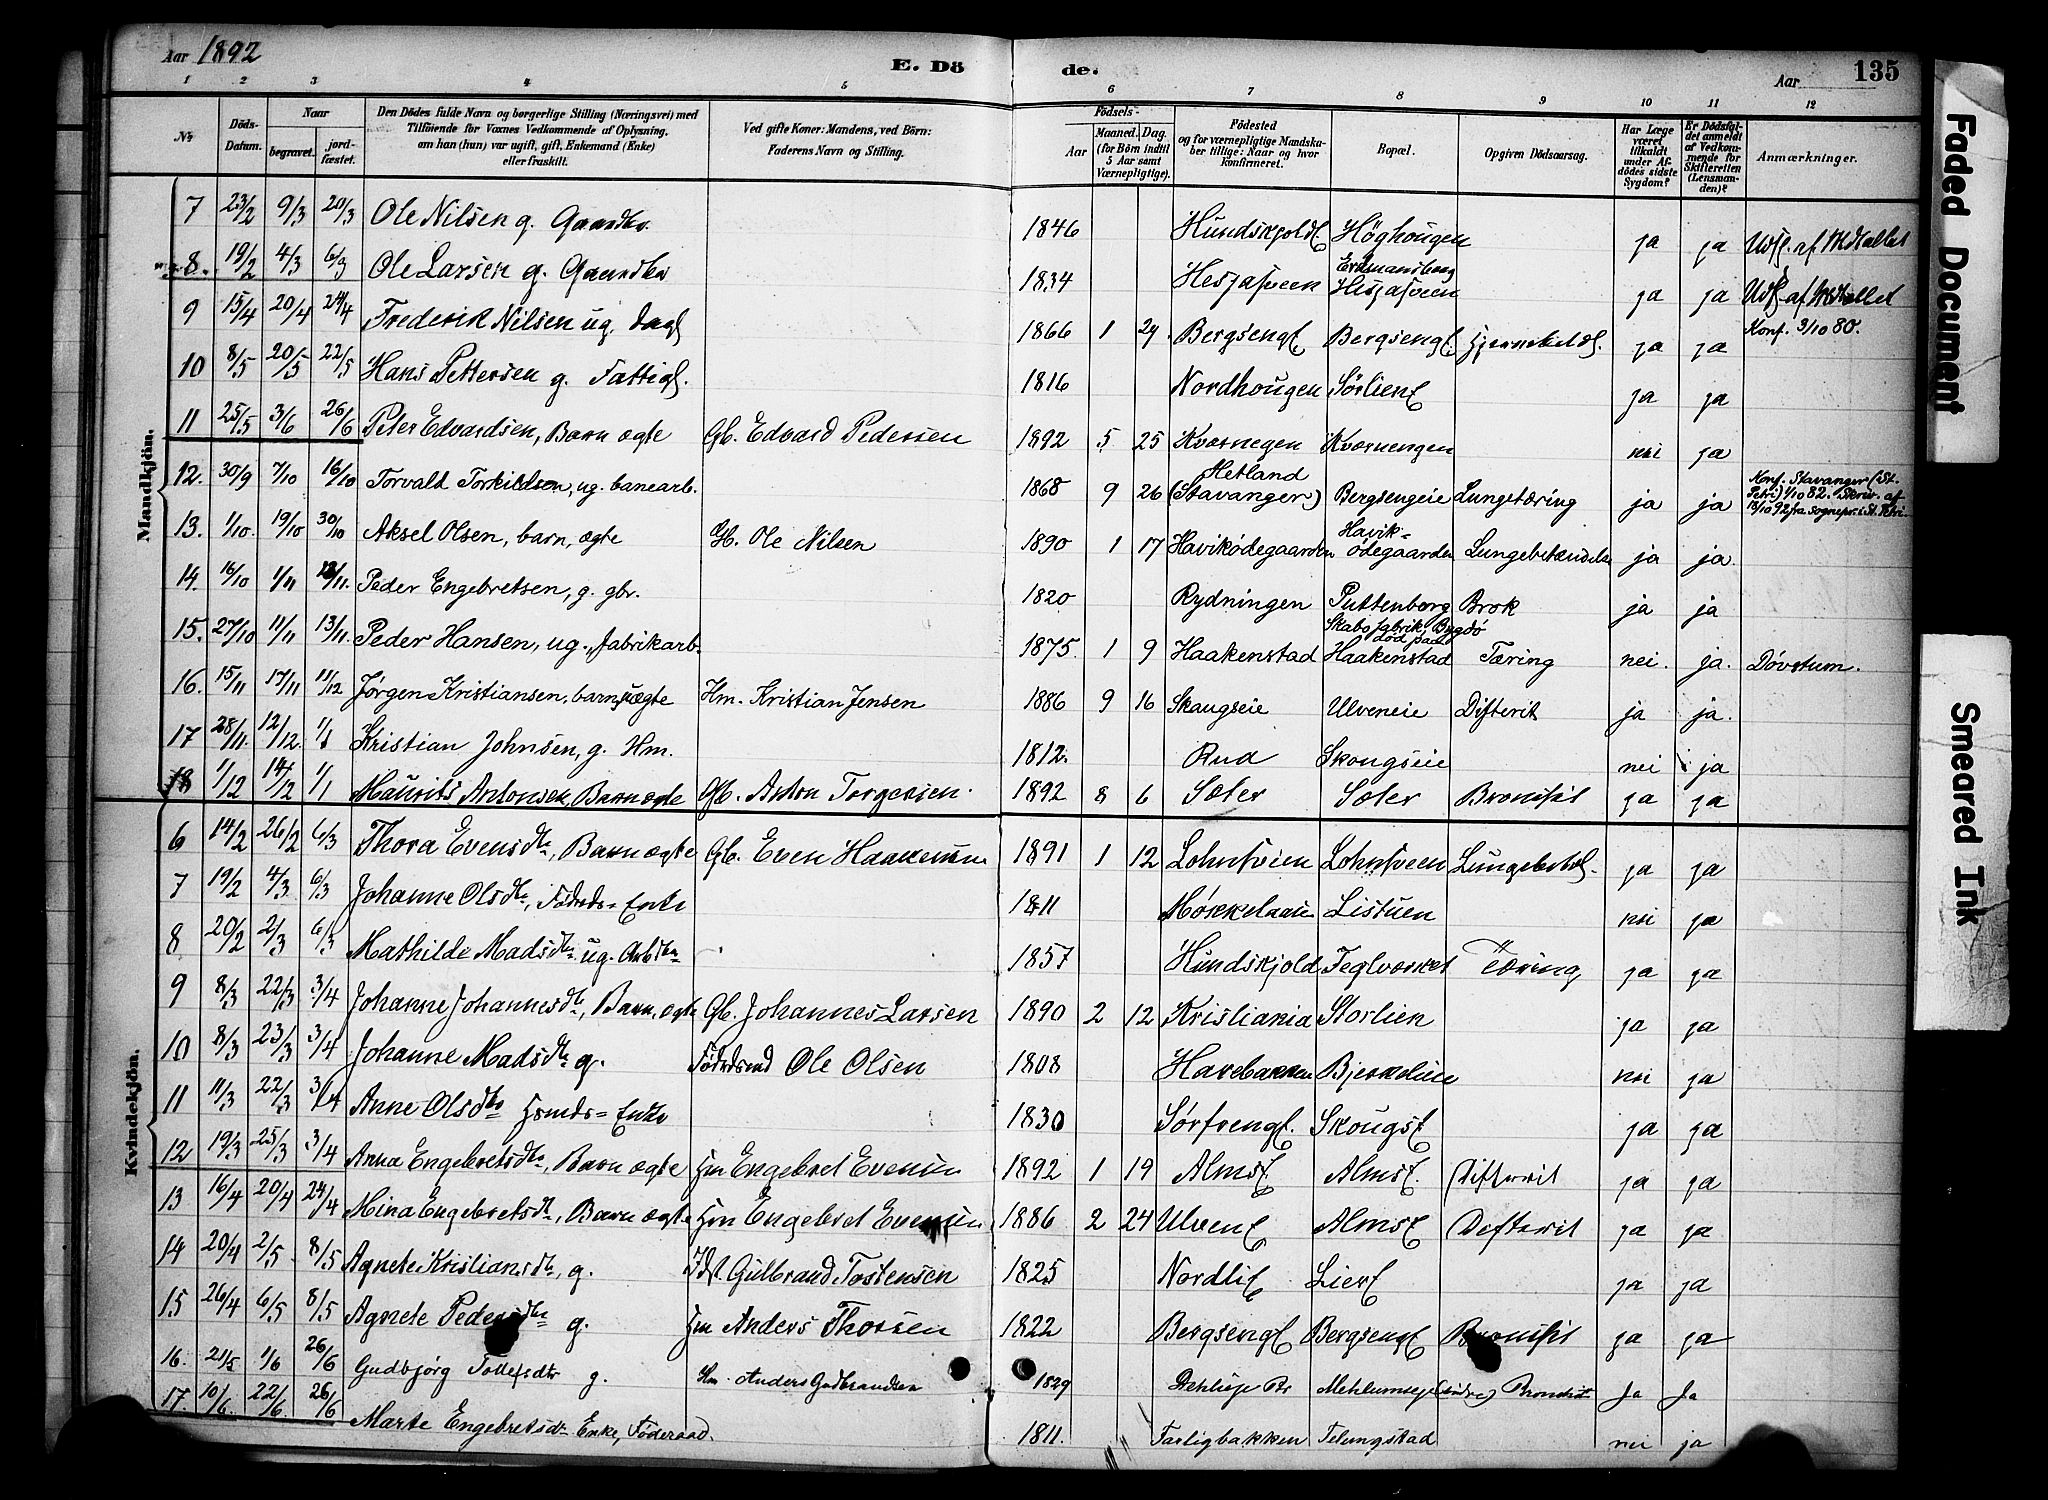 Aar 1892
E. Dö de.
Aar 135
1 2 3 4 5 6 7 8 9 10 11 12
№
Döds-Datum.
Naar
begravet.
jord-fæstet.
Den Dödes fulde Navn og borgerlige Stilling (Næringsvei) med
Tilföiende for Voxnes Vedkommende af Oplysning.
om han (hun) var ugift, gift, Enkemand (Enke)
eller fraskilt.
Ved gifte Koner: Mandens, ved Börn:
Faderens Navn og Stilling.
Födsels-
Aar
Maaned. Dag.
(for Börn indtil
5 Aar samt
Værnepligtige).
Födested
og for værnepligtige Mandska-
ber tillige: Naar og hvor
konfirmeret.
Bopæl.
Opgiven Dödsaarsag.
Har Læge
været
tilkaldt
under Af-
dödes sidste
Sygdom?
Er Dödsfal-
det anmeldt
af Vedkom-
mende for
Skifteretten
(Lensman-
den)?
Anmærkninger.
Mandkjön.
7 23/2 9/3 20/3 Ole Nilsen g. Gaardbr. 1846 Hundskjold Höghougen ja ja
8 19/2 4/3 6/3 Ole Larsen g. Gaardbr 1834 Heszasveen Heszasveen ja ja
9 15/4 20/4 24/4 Frederik Nilsen ug. Dagl 1866 1 29 Bergsengl Bergsengl. ja ja Konf. 3/10 80.
10 8/5 20/5 22/5 Hans Pettersen g. Fattigl. 1816 Nordhougen Sörlien ja ja
11 25/5 3/6 26/6 Peter Edvardsen, Barn ægte Gb. Edvard Pedersen 1892 5 25 Kværnegen Kværnengen nei ja
12. 30/9 7/10 16/10 Torvald Torkildsen, ug. banearb. 1868 9 26 Hetland (Stavanger) Bergsengeie Lungetæring ja ja Konf. Stavanger (St. Petri) 1/10 82. Skriv. af 18/10 92 fra sognepr. i St. Petri
13. 1/10. 19/10 30/10 Aksel Olsen, barn, ægte H. Ole Nilsen 1890 1 17 Havikødegaarden Havik-ødegaarden Lungebetændelse ja ja.
14. 16/10 1/11 13/11. Peder Engebretsen, g. gbr. 1820 Rydningen Puttenborg Brok ja ja
15. 27/10 11/11 13/11. Peder Hansen, ug., fabrikarb. 1875. 1 9 Haakenstad Skabo fabrik, Bygdø død paa Haakenstad Tæring nei. ja. Døvstum.
16. 15/11 17/11 11/12 Jørgen Kristiansen, barn, uægte Hm. Kristian Jensen 1886 9 16 Skaugseie Ulveneie Difterit ja ja.
17 28/11. 12/12. 1/1 Kristian Johnsen, g. Hm. 1812. Rud Skougseie nei ja
18 1/12 14/12 1/1 Maurits Antonsen, Barn ægte Gb. Anton Torgersen. 1892 8 6 Sæter Sæter Bronkit ja ja
Kvindekjön.
6 14/2 26/2 6/3 Thora Evensdtr, Barn ægte Gb. Even Haakensen 1891 1 12 Lohnsveen Lohnsveen Lungebetæl. ja ja
7 19/2 4/3 6/3 Johanne Olsdtr, Födrds-Enke 1811 Listuen nei ja
8 20/2 2/3 6/3 Mathilde Madsdtr ug. 1857 Hundskjold Teglværket Tæring ja ja
9 8/3 22/3 3/4 Johanne Johannesdtr, Barn, ægte Gb. Johannes Larsen 1890 2 12 Kristiania Storlien ja ja
10 8/3 23/3 3/4 Johanne Madsdtr g. Födrdsmd Ole Olsen 1808 Harebakken nei ja
11 11/3 22/3 3/4 Anne Olsdtr Hsmds-Enke 1830 Sörsveng. Skougs ja ja
12 19/3 25/3 3/4 Anna Engebretsdtr, Barn ægte Hm Engebret Evensen 1892 1 19 Alms Alms Difterit ja ja
13 16/4 20/4 24/4 Mina Engebretsdtr, Barn ægte Hm Engebret Evensen 1886 2 24 Ulven Alms Difterit ja ja
14 20/4 2/5 8/5 Agnete Kristiansdtr, g. Gulbrand Tostensen 1825 Nordli Lier ja ja
15 26/4 6/5 8/5 Agnete Pedersdtr g. Hm Anders Thorsen 1822 Bergseng Bergseng Bronkit ja ja
16. 21/5 1/6 26/6 Gudbjørg Tollefsdtr g. Hm. Anders Gudbrandsen 1829 Bronchit Ja Ja
17. 10/6. 22/6. 26/6 Marte Engebretsdtr Enke, Föderaad. 1811. Farligbakken Telungstad nei ja
Faded Document
Smeared Ink